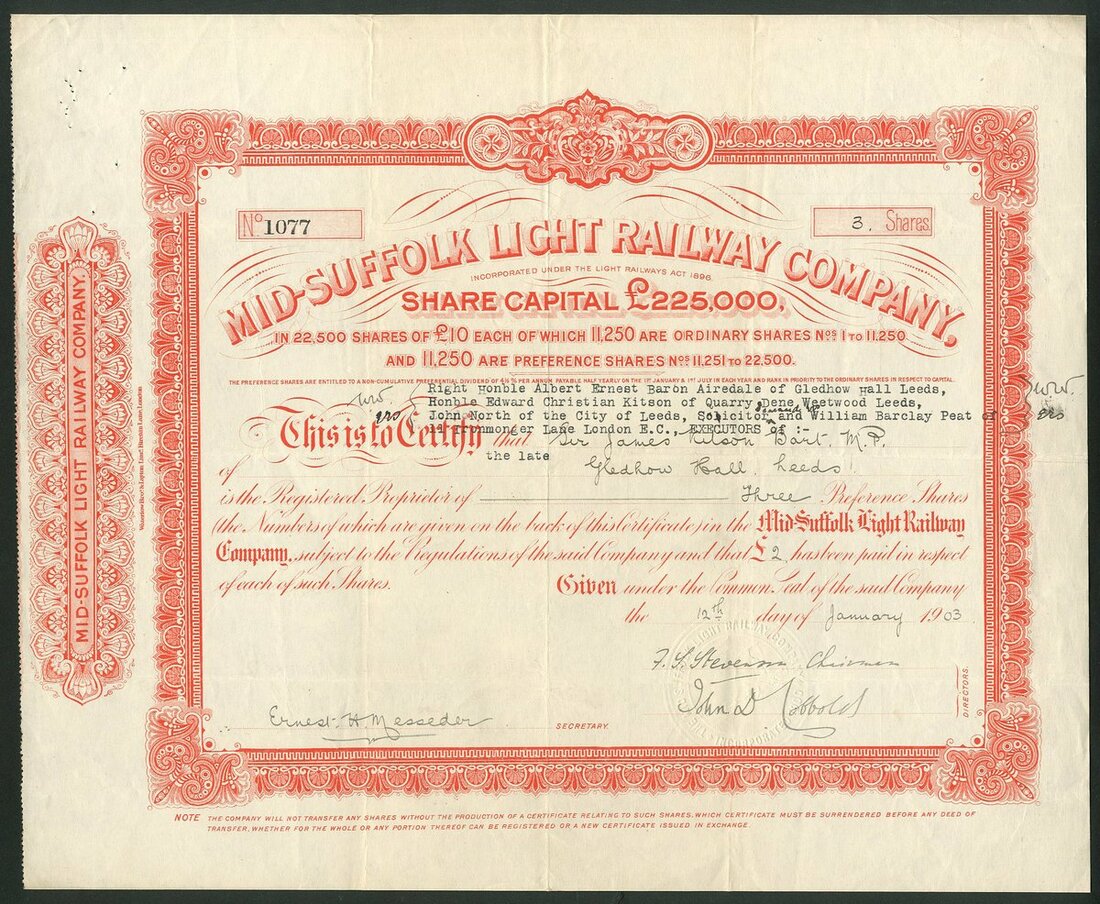 No 1077
3. Shares.
MID-SUFFOLK LIGHT RAILWAY COMPANY,
INCORPORATED UNDER THE LIGHT RAILWAYS ACT 1896.
SHARE CAPITAL £225,000,
IN 22,500 SHARES OF £10 EACH OF WHICH 11,250 ARE ORDINARY SHARES Nos 1 TO 11.250
AND 11,250 ARE PREFERENCE SHARES Nos 11.251 TO 22.500.
THE PREFERENCE SHARES ARE ENTITLED TO A NON-CUMULATIVE PREFERENTIAL DIVIDEND OF 4½% PER ANNUM PAYABLE HALF YEARLY ON THE 1ST JANUARY & 1ST JULY IN EACH YEAR AND RANK IN PRIORITY TO THE ORDINARY SHARES IN RESPECT OF CAPITAL.
Right Honble Albert Ernest Baron Airedale of Gledhow Hall Leeds,
Honble Edward Christian Kitson of Quarry Dene Weetwood Leeds,
John North of the City of Leeds, Solicitor and William Barclay Peat of
11 Ironmonger Lane London E.C., EXECUTORS of :-
This is to Certify that Sir James Kitson Bart. M.P.
the late
of Gledhow Hall, Leeds
is the Registered Proprietor of Three Preference Shares
(the Numbers of which are given on the back of this Certificate) in the Mid-Suffolk Light Railway
Company, subject to the Regulations of the said Company and that £2 has been paid in respect
of each of such Shares.
Given under the Common Seal of the said Company
the 12th day of January 1903
F. S. Stevenson Chairman
John D Cobbold
DIRECTORS.
Ernest H Messeder
SECRETARY.
NOTE THE COMPANY WILL NOT TRANSFER ANY SHARES WITHOUT THE PRODUCTION OF A CERTIFICATE RELATING TO SUCH SHARES, WHICH CERTIFICATE MUST BE SURRENDERED BEFORE ANY DEED OF
TRANSFER, WHETHER FOR THE WHOLE OR ANY PORTION THEREOF CAN BE REGISTERED OR A NEW CERTIFICATE ISSUED IN EXCHANGE.
MID-SUFFOLK LIGHT RAILWAY COMPANY.